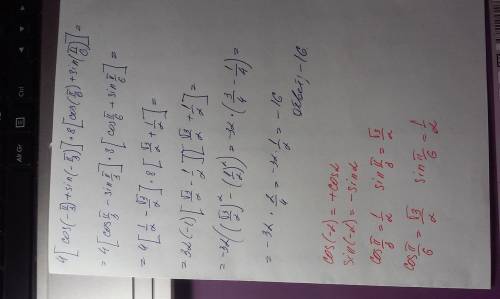 4[cos(-π/3)+sin(-π/3)]·8[cos(π/6)+sin(π/6)]=
=4[cos π/3 - sin π/3]·8[cos π/6 + sin π/6]=
=4[1/2 - √3/2]·8[√3/2 + 1/2]=
=32(-1)[√3/2 - 1/2][√3/2 + 1/2]=
=-32((√3/2)² - (1/2)²)=-32·(3/4 - 1/4)=
=-32·2/4=-32·1/2=-16
Ответ: -16
cos(-α)=+cosα
sin(-α)=-sinα
cos π/3 = 1/2 sin π/3 = √3/2
cos π/6 = √3/2 sin π/6 = 1/2
Alt Gr
Ctrl